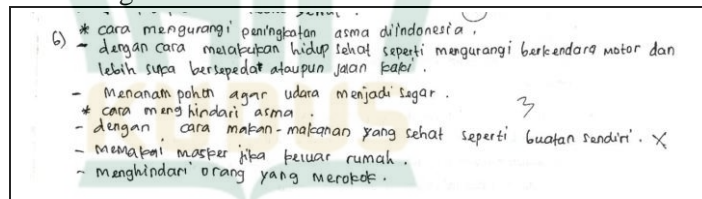 6) * cara mengurangi peningkatan asma diindonesia.
- dengan cara melakukan hidup sehat seperti mengurangi berkendara motor dan
lebih suka bersepedat ataupun jalan kaki.
- Menanam pohon agar udara menjadi segar.
* cara meng hindari asma.
3
- dengan cara makan-makanan yang sehat seperti buatan sendiri. X
- memakai masker jika keluar rumah.
- menghindari orang yang merokok.